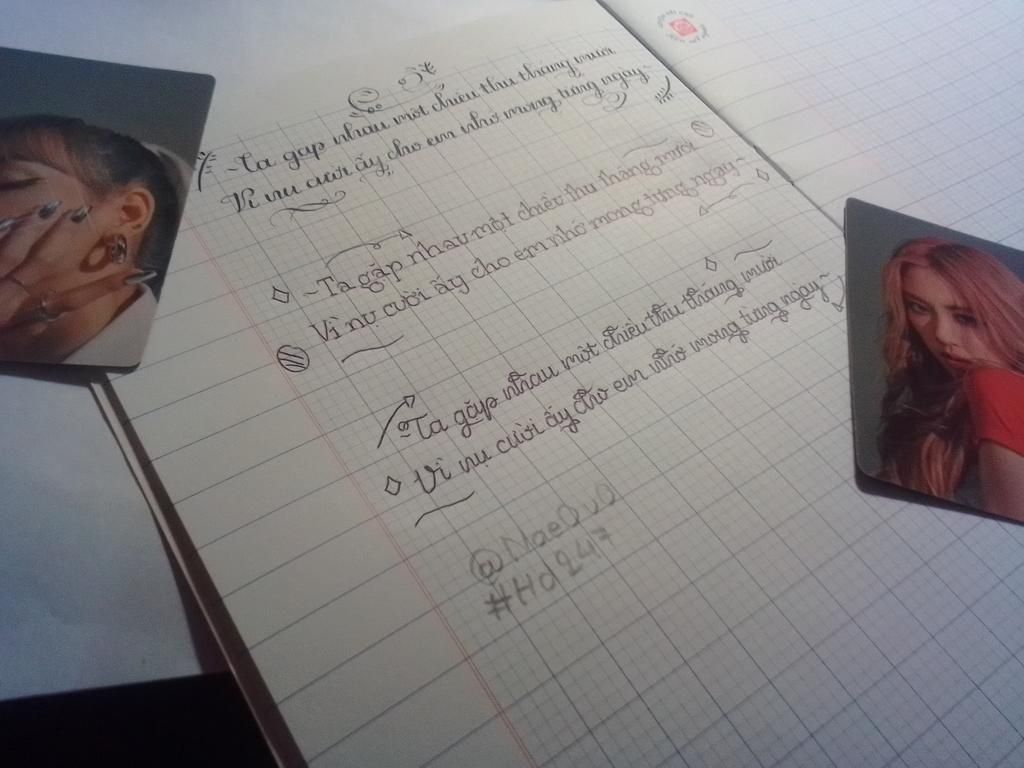 ~Ta gặp nhau một chiều thu tháng mười
Vì nụ cười ấy cho em nhớ mong từng ngày~
~Ta gặp nhau một chiều thu tháng mười
Vì nụ cười ấy cho em nhớ mong từng ngày~
~Ta gặp nhau một chiều thu tháng mười
Vì nụ cười ấy cho em nhớ mong từng ngày~
@NaeQuO
#Hd247